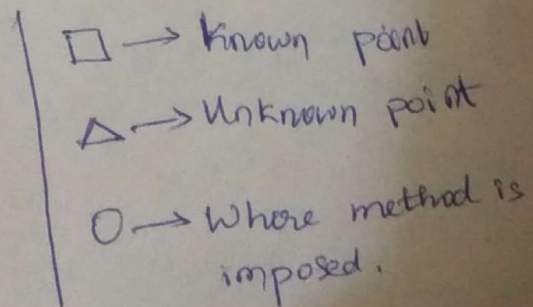 □ → Known point
△ → Unknown point
○ → Where method is
imposed.